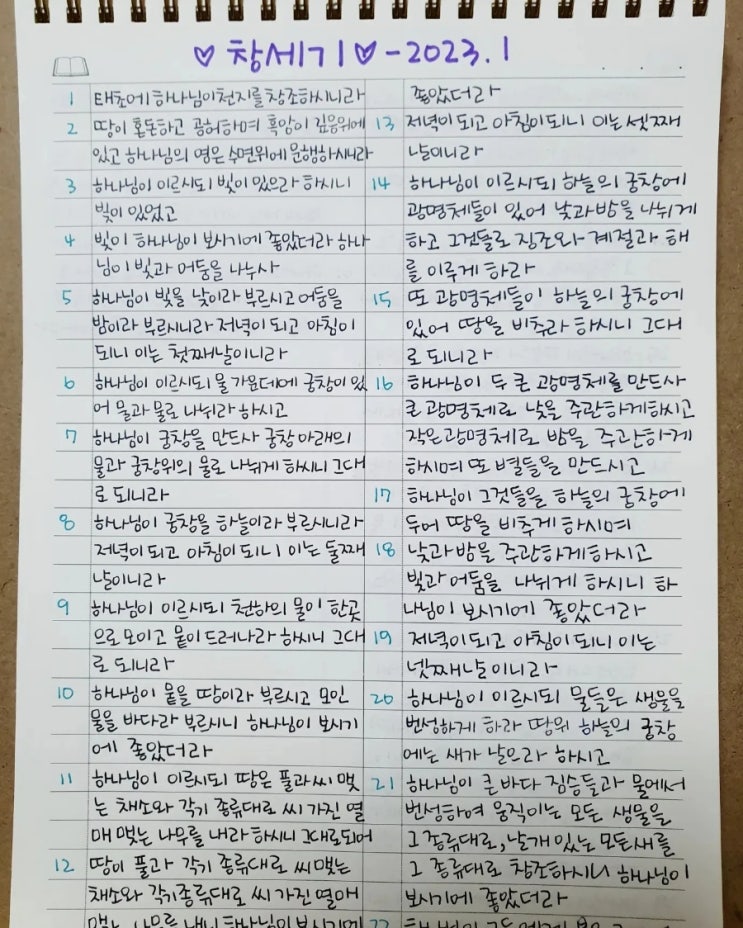 ♡창세기♡-2023.1
1 태초에 하나님이 천지를 창조하시니라
2 땅이 혼돈하고 공허하며 흑암이 깊음위에
있고 하나님의 영은 수면위에 운행하시니라
3 하나님이 이르시되 빛이 있으라 하시니
빛이 있었고
4 빛이 하나님이 보시기에 좋았더라 하나
님이 빛과 어둠을 나누사
5 하나님이 빛을 낮이라 부르시고 어둠을
밤이라 부르시니라 저녁이 되고 아침이
되니 이는 첫째날이니라
6 하나님이 이르시되 물 가운데에 궁창이 있
어 물과 물로 나뉘라 하시고
7 하나님이 궁창을 만드사 궁창 아래의
물과 궁창위의 물로 나뉘게 하시니 그대
로 되니라
8 하나님이 궁창을 하늘이라 부르시니라
저녁이 되고 아침이 되니 이는 둘째
날이니라
9 하나님이 이르시되 천하의 물이 한곳
으로 모이고 뭍이 드러나라 하시니 그대
로 되니라
10 하나님이 뭍을 땅이라 부르시고 모인
물을 바다라 부르시니 하나님이 보시기
에 좋았더라
11 하나님이 이르시되 땅은 풀과 씨 맺
는 채소와 각기 종류대로 씨 가진 열
매 맺는 나무를 내라 하시니 그대로되어
12 땅이 풀과 각기 종류대로 씨 맺는
채소와 각기종류대로 씨 가진 열매
좋았더라
13 저녁이 되고 아침이 되니 이는 셋째
날이니라
14 하나님이 이르시되 하늘의 궁창에
광명체들이 있어 낮과 밤을 나뉘게
하고 그것들로 징조와 계절과 해
를 이루게 하라
15 또 광명체들이 하늘의 궁창에
있어 땅을 비추라 하시니 그대
로 되니라
16 하나님이 두 큰 광명체를 만드사
큰 광명체로 낮을 주관하게하시고
작은 광명체로 밤을 주관하게
하시며 또 별들을 만드시고
17 하나님이 그것들을 하늘의 궁창에
두어 땅을 비추게 하시며
18 낮과 밤을 주관하게 하시고
빛과 어둠을 나뉘게 하시니 하
나님이 보시기에 좋았더라
19 저녁이 되고 아침이 되니 이는
넷째날이니라
20 하나님이 이르시되 물들은 생물을
번성하게 하라 땅위 하늘의 궁창
에는 새가 날으라 하시고
21 하나님이 큰 바다 짐승들과 물에서
번성하여 움직이는 모든 생물을
그 종류대로, 날개 있는 모든 새를
그 종류대로 창조하시니 하나님이
보시기에 좋았더라
22